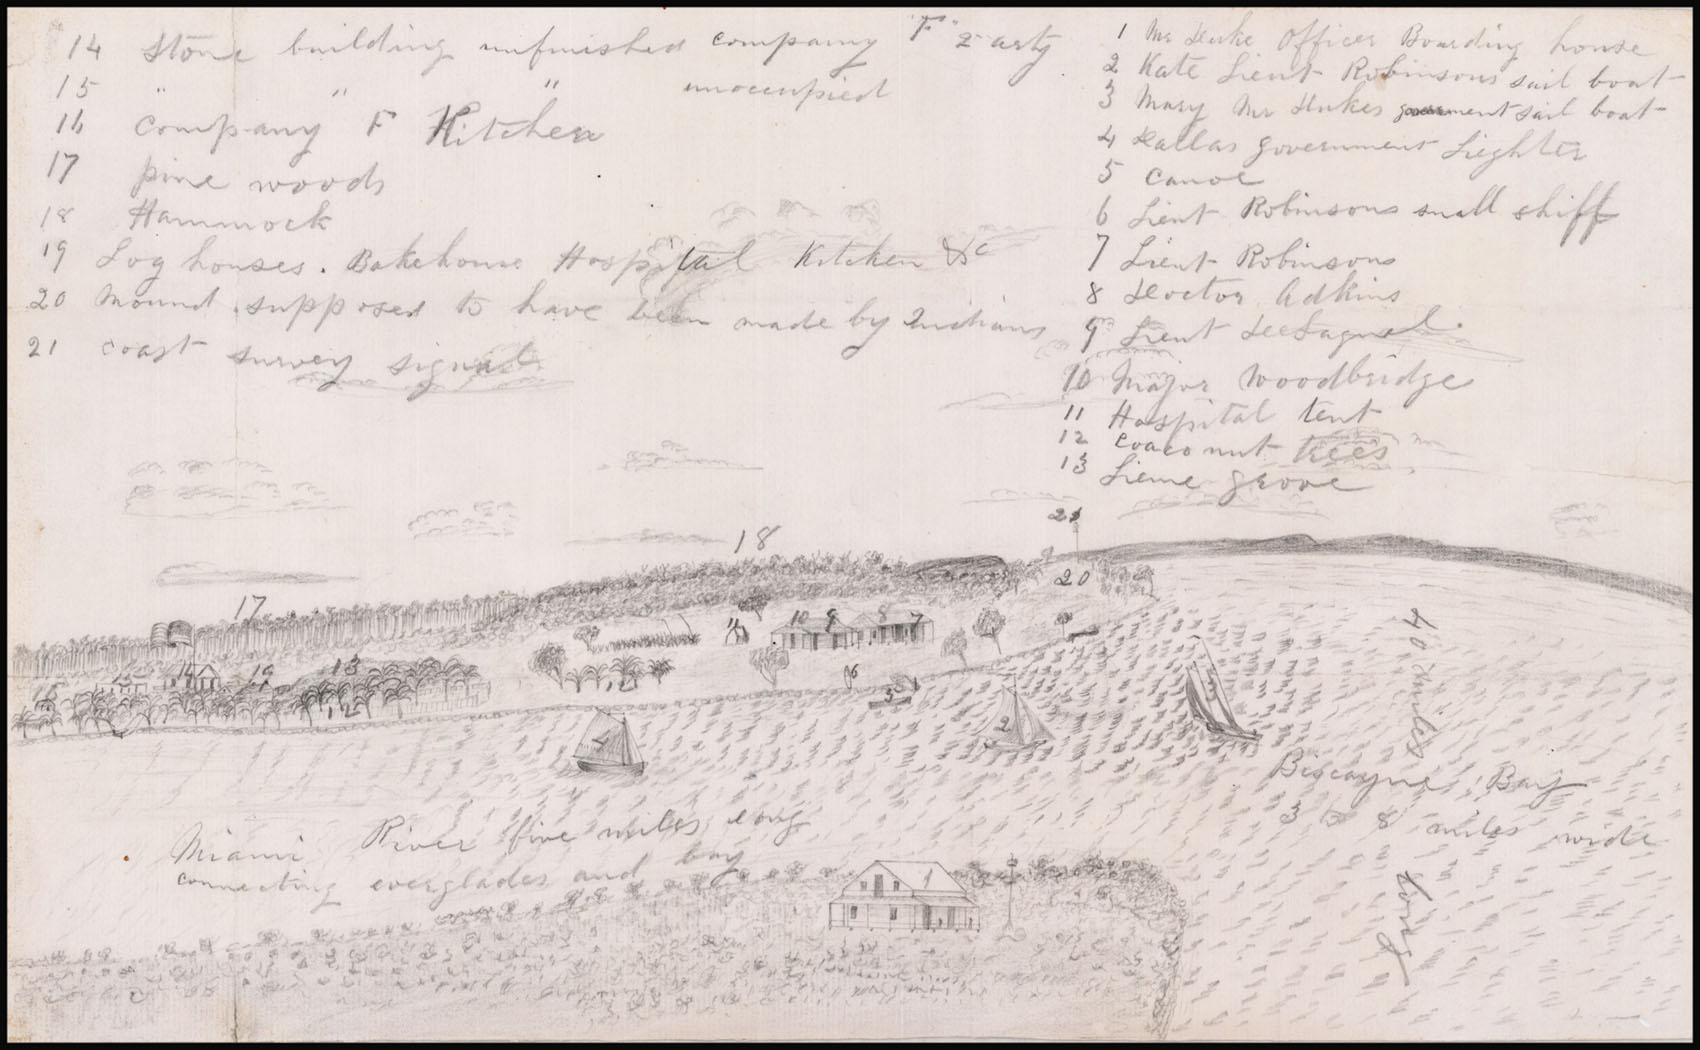 14 Stone building unfinished company "F" 2 arty
15 " " " unoccupied
16 Company F Kitchen
17 pine woods
18 Hammock
19 Log houses. Bakehouse Hospital Kitchen &c
20 Mound supposed to have been made by Indians
21 coast survey signal
1 Mr Duke Officer Boarding house
2 Kate Lieut Robinsons sail boat
3 Mary Mr Dukes government sail boat
4 Dallas government Lighter
5 Canoe
6 Lieut Robinsons small skiff
7 Lieut Robinsons
8 Doctor Adkins
9 Lieut DeLagnel
10 Major Woodbridge
11 Hospital tent
12 Coaco nut trees
13 Lieme grove
21
18
20
17
11 10 9 8 7
15 14 19 13
12
12
6
5
2
40 miles long
Biscayne Bay
3 to 8 miles wide
Miami River five miles long
connecting everglades and bay
1